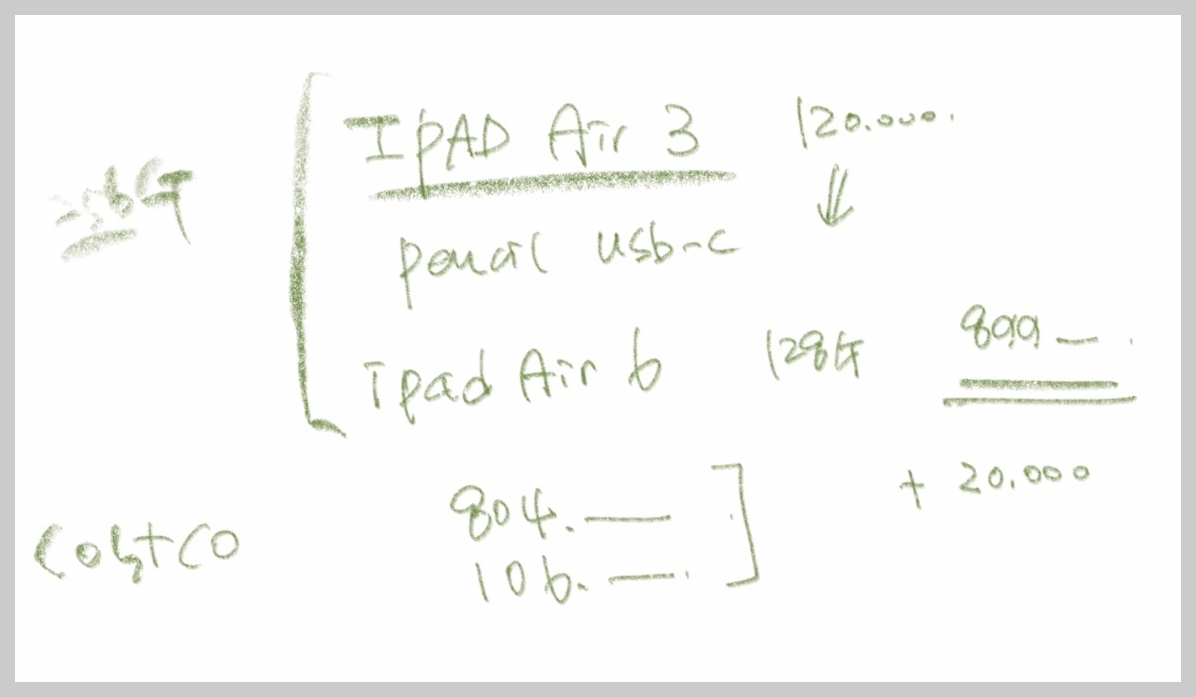 IPAD Air 3 120.000.
256G
pencil usb-c
ipad Air 6 128G 899 —.
+ 20.000
Costco 804. —
106. —.